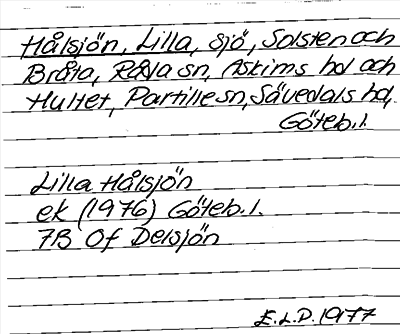 Hålsjön, Lilla, sjö, Solsten och
Bråta, Råda sn, Askims hd och
Hultet, Partille sn, Sävedals hd,
Göteb. l.
Lilla Hålsjön
ek (1976) Göteb. l.
7B Of Delsjön
E.L.P. 1977